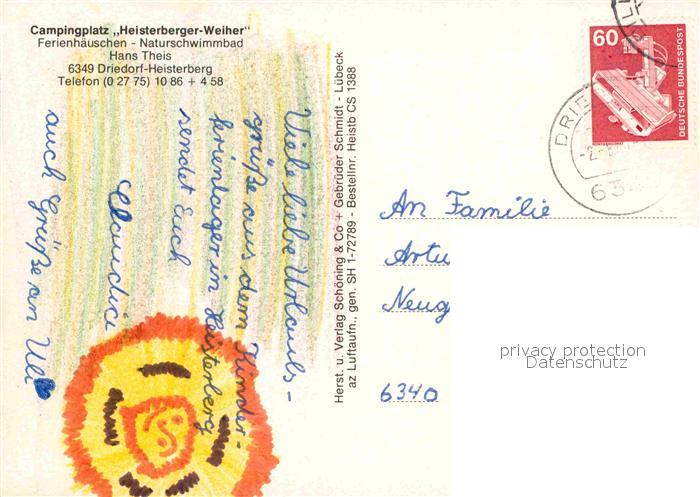 Campingplatz „Heisterberger-Weiher"
Ferienhäuschen - Naturschwimmbad
Hans Theis
6349 Driedorf-Heisterberg
Telefon (0 27 75) 10 86 + 4 58
Viele liebe Urlaubs-
grüße aus dem Kinder-
ferienlager in Heisterberg
sendet Euch
Claudia
auch Grüße an Uli
Herst. u. Verlag Schöning & Co + Gebrüder Schmidt - Lübeck
az Luftaufn., gen. SH 1-72789 - Bestellnr. Heistb CS 1388
60
DEUTSCHE BUNDESPOST
DRIE
-2.-
634
An Familie
Artu
Neug
6340
privacy protection
Datenschutz